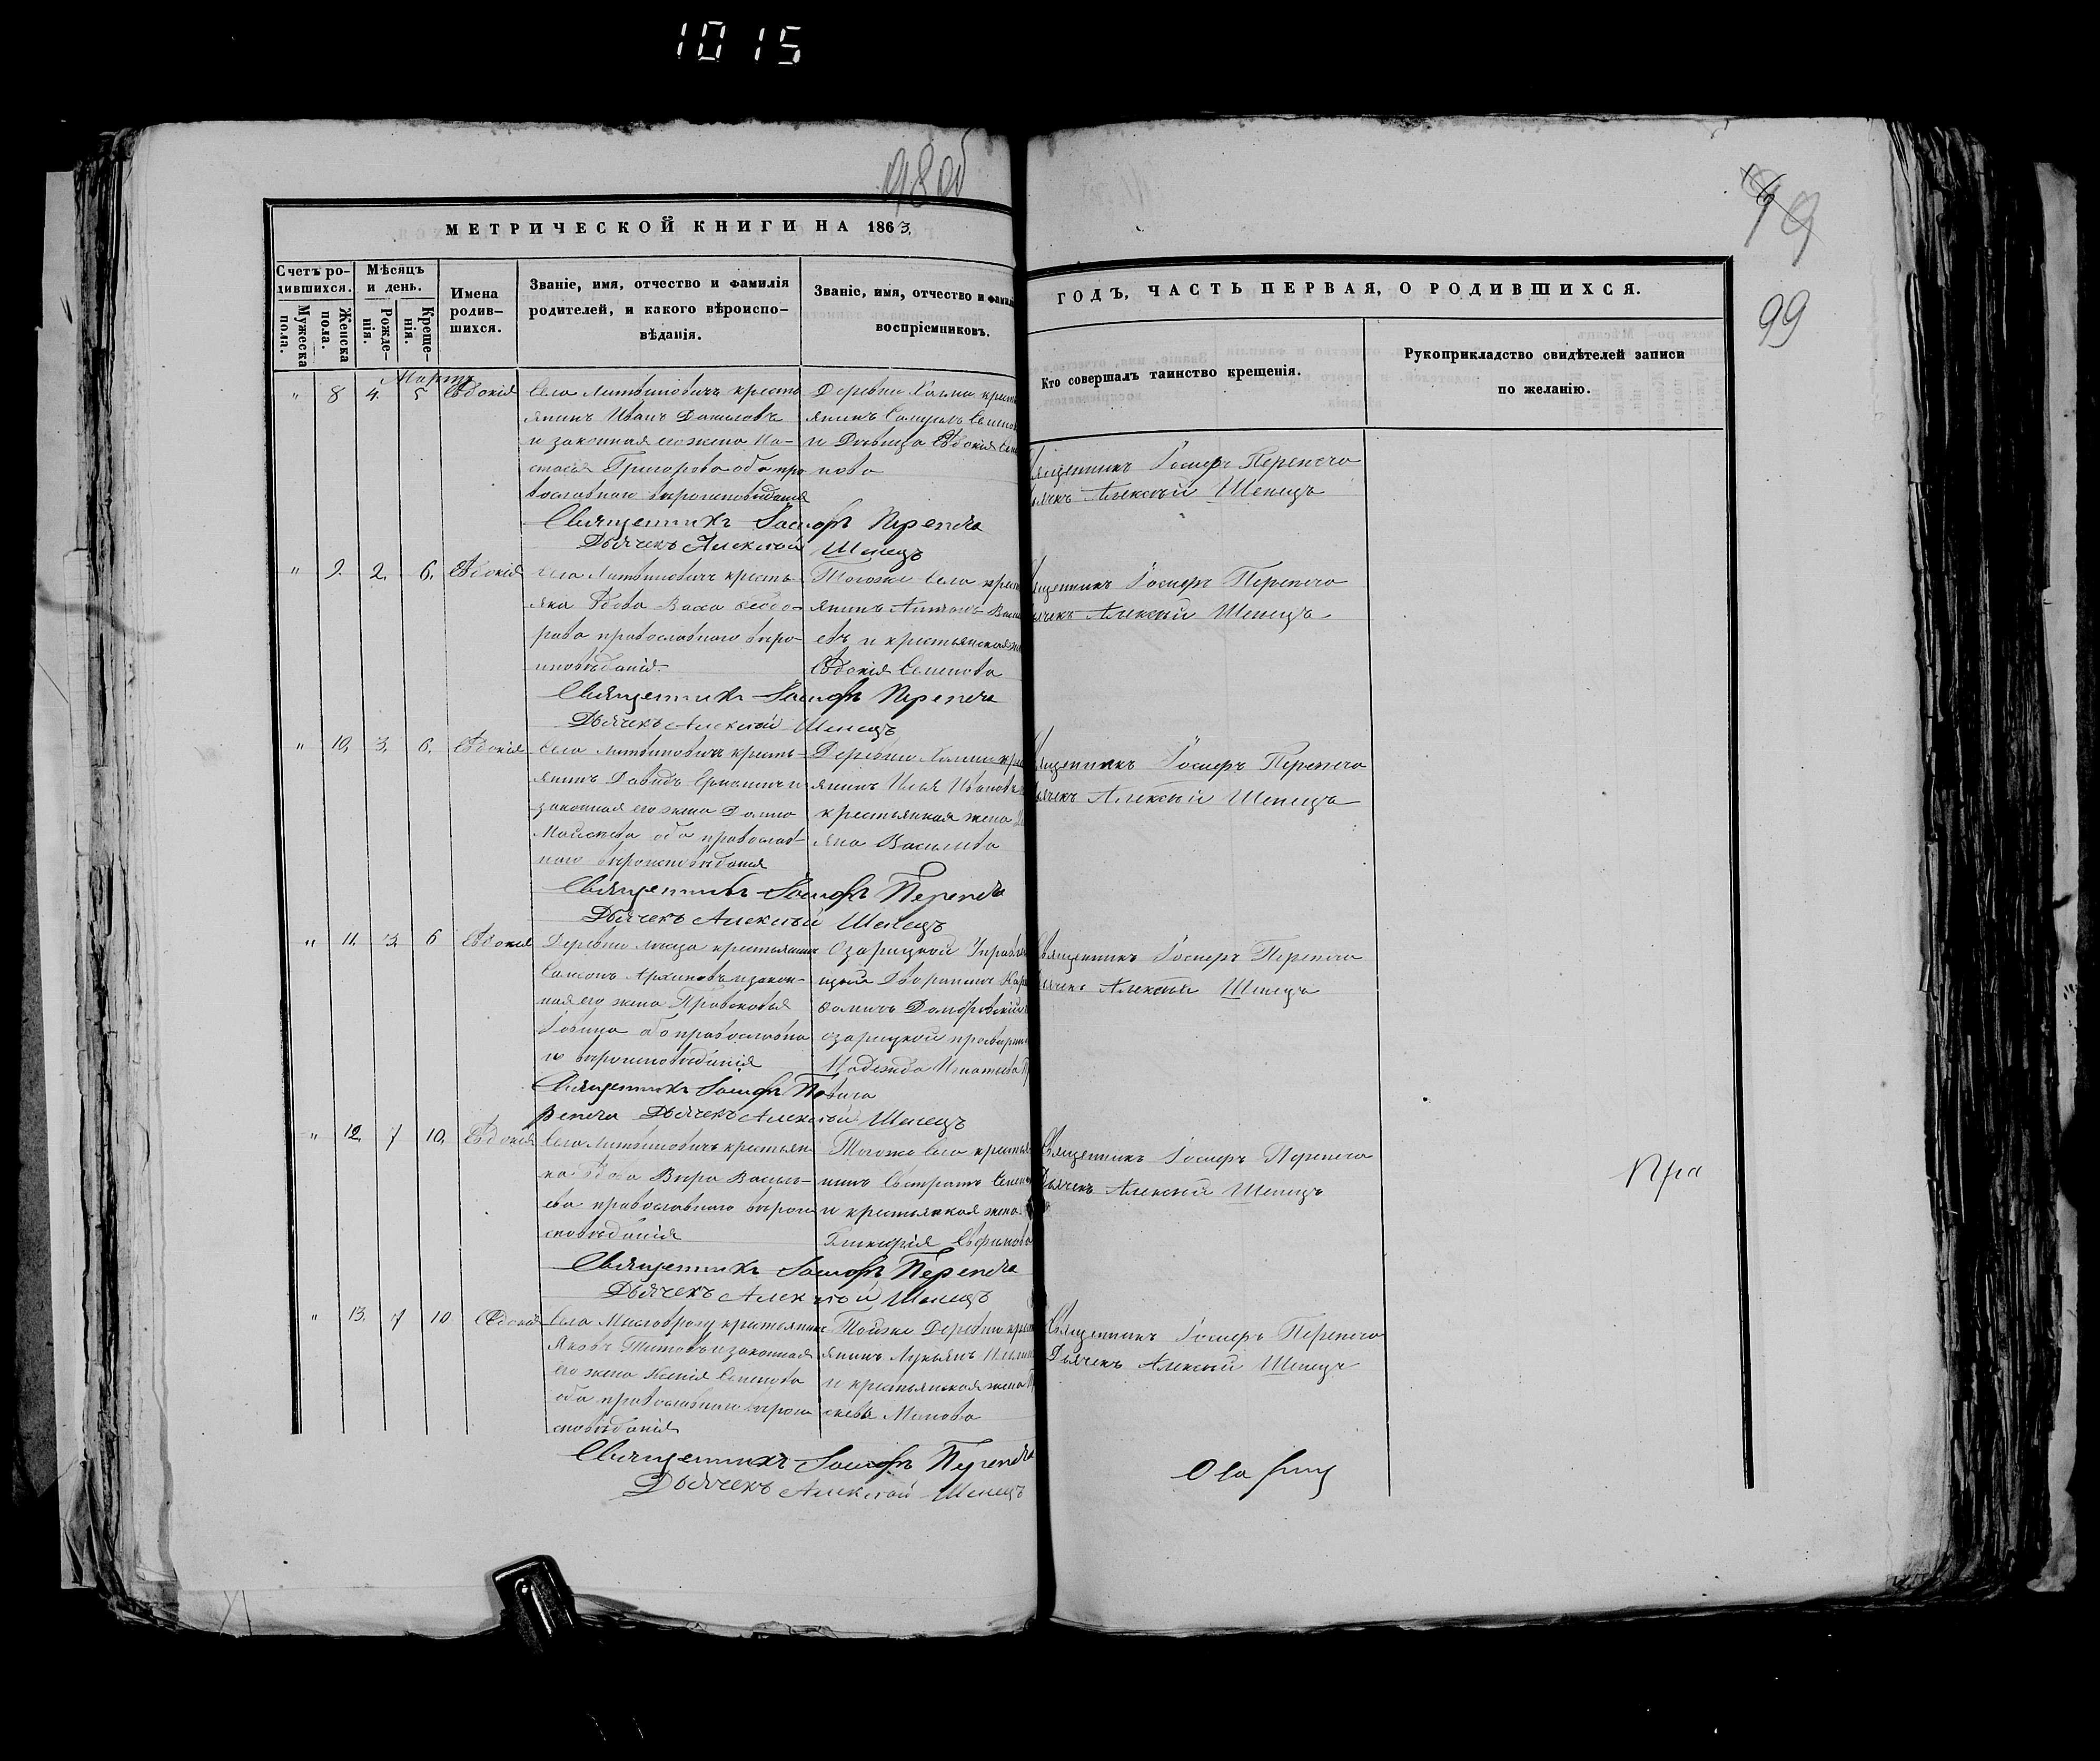 1015
98 об
МЕТРИЧЕСКОЙ КНИГИ НА 1863
Счетъ ро-
дившихся.
Мѣсяцъ
и день.
Мужеска
пола.
Женска
пола.
Рожде-
нія.
Креще-
нія.
Имена
родив-
шихся.
Званіе, имя, отчество и фамилія
родителей, и какого вѣроиспо-
вѣданія.
Званіе, имя, отчество и фамил
воспріемниковъ.
Мартъ
" 8 4. 5 Евдокія
Села Литвиновичъ кресть
янинъ Иванъ Даниловъ
и законная его жена На-
стасія Григорова оба пра
вославнаго вѣроисповѣданія
Деревни крест
янинъ Самуилъ Семено
и Дѣвица Евдокія Сем
нова
Священникъ Іосифъ Перепеча
Дьячекъ Алексѣй Шепецъ
" 9. 2. 6. Евдокія
Села Литвиновичъ кресть-
яка Вдова Васса Ѳеодо-
рова православнаго вѣро-
исповѣданія
Тогоже Села крест
янинъ Антонъ Васил
евъ и крестьянская же
Евдокія Семенова
Священникъ Іосифъ Перепеча
Дьячекъ Алексѣй Шепецъ
" 10. 3. 6. Евдокія
Села Литвиновичъ кресть-
янинъ Давидъ и
законная его жена Домна
Моисеева оба православ-
наго вѣроисповѣданія
Деревни кре
янинъ Илья Ивановъ
крестьянкая жена
яна Василева
Священникъ Іосифъ Перепеча
Дьячекъ Алексѣй Шепецъ
" 11. 3. 6 Евдокія
Деревни крестьянинъ
Самсонъ Архиповъ и закон-
ная его жена Правсковья
Саввина оба православна
го вѣроисповѣданія
Озарицкой Управля
ющій Дворянинъ Кар
Домбровскій
озарицкой просвирн
Надежда Игнатьева
Священникъ Іосифъ Пе
репеча Дьячекъ Алексѣй Шепецъ
" 12. 7 10. Евдокія
Села Литвиновичъ крестьян
ка Вдова Вѣра Василь-
ева православнаго вѣрои
сповѣданія
Тогоже Села крестья
нинъ Евстратъ Семен
и крестьянкая жена
Гликерія Евфимова
Священникъ Іосифъ Перепеча
Дьячекъ Алексѣй Шепецъ
" 13. 7 10 Евдокія
Села крестьянинъ
Яковъ Титовъ и законная
его жена Ксенія Семенова
оба православнаго вѣрои
сповѣданія
Тойже Деревни крест
янинъ Лукьянъ
и крестьянская жена
скева
Священникъ Іосифъ Перепеча
Дьячекъ Алексѣй Шепецъ
99
99
ГОДЪ, ЧАСТЬ ПЕРВАЯ, О РОДИВШИХСЯ.
Кто совершалъ таинство крещенія.
Рукоприкладство свидѣтелей записи
по желанію.
Священникъ Іосифъ Перепеча
Дьячекъ Алексѣй Шепецъ
Священникъ Іосифъ Перепеча
Дьячекъ Алексѣй Шепецъ
Священникъ Іосифъ Перепеча
Дьячекъ Алексѣй Шепецъ
Священникъ Іосифъ Перепеча
Дьячекъ Алексѣй Шепецъ
Священникъ Іосифъ Перепеча
Дьячекъ Алексѣй Шепецъ
Священникъ Іосифъ Перепеча
Дьячекъ Алексѣй Шепецъ
Пра